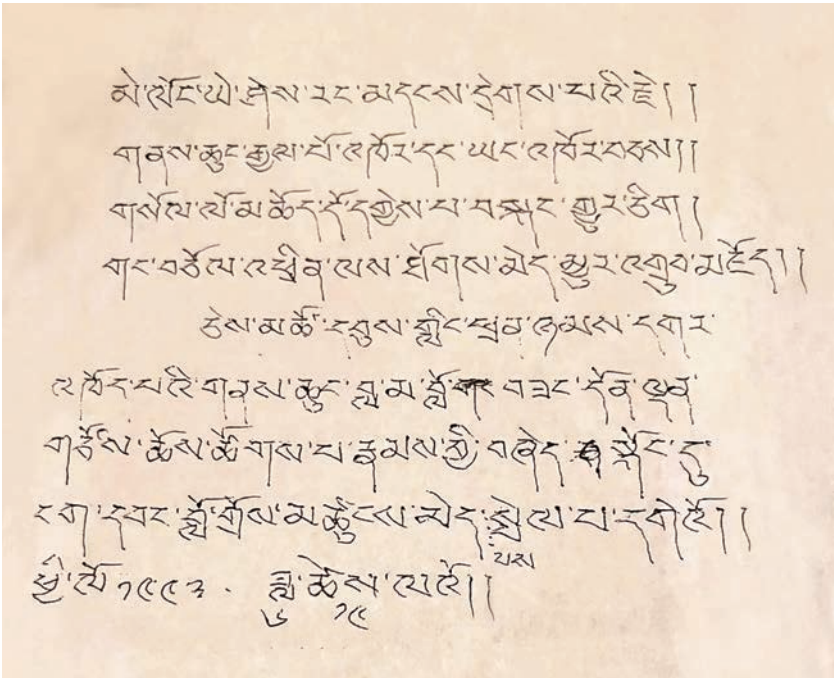 མེ་ལོང་ཡེ་ཤེས་རང་མདངས་དྲེགས་པའི་རྗེ།།
གནས་ཆུང་རྒྱལ་པོ་འཁོར་དང་ཡང་འཁོར་བཅས།།
གསོལ་ལོ་མཆོད་དོ་དགྱེས་པ་བསྐང་གྱུར་ཅིག།
གང་བཅོལ་འཕྲིན་ལས་ཐོགས་མེད་མྱུར་འགྲུབ་མཛོད།།
ཅེས་མཚོ་དབུས་གླིང་ཕྲན་ཉམས་དགར་
འཁོད་པའི་གནས་ཆུང་བླ་མ་བློ་བཟང་དོན་ལྡན་
གཙོས་ཆོས་ཚོགས་པ་རྣམས་ཀྱི་བཞེད་སྐོང་དུ་
ངག་དབང་བློ་གྲོས་མཚུངས་མེད་སྤྲེལ་པ་དགེའོ།།
པས
སྤྱི་ལོ་༡༩༩༣. ཟླ་ཚེས་ལའོ།།
༦ ༡༩